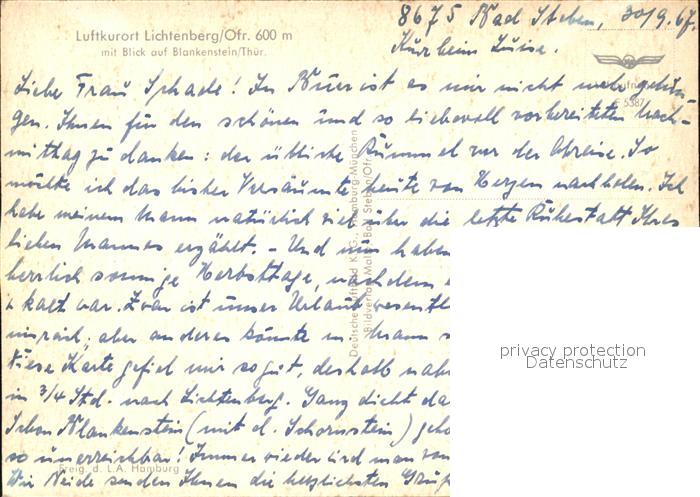 8675 Bad Steben, 30/9.67.
Luftkurort Lichtenberg/Ofr. 600 m
mit Blick auf Blankenstein/Thür.
Kurheim Luise.
Liebe Frau Schade! In war ist es mir nicht mehr gelun-
gen, Ihnen für den schönen und so liebevoll vorbereiteten Nach-
mittag zu danken: der übliche Rummel vor der Abreise. So
möchte ich das bisher Versäumte heute von Herzen nachholen. Ich
habe meinem Mann natürlich viel über die letzte Ruhestatt Ihres
lieben Mannes erzählt. - Und nun haben
herrlich sonnige Herbsttage, nachdem
kalt war. Zwar ist unser Urlaub
aber anders könnte m. Mann
Diese Karte gefiel mir so gut, deshalb
in 3/4 Std. nach Lichtenberg. Ganz dicht
schon Blankenstein (mit d. Schornstein)
so unerreichbar! Immer wieder wird man
Wir Beide senden Ihnen die herzlichsten
Deutsche Luftbild K.G., Hamburg-München
Freig. d. L.A. Hamburg
privacy protection
Datenschutz